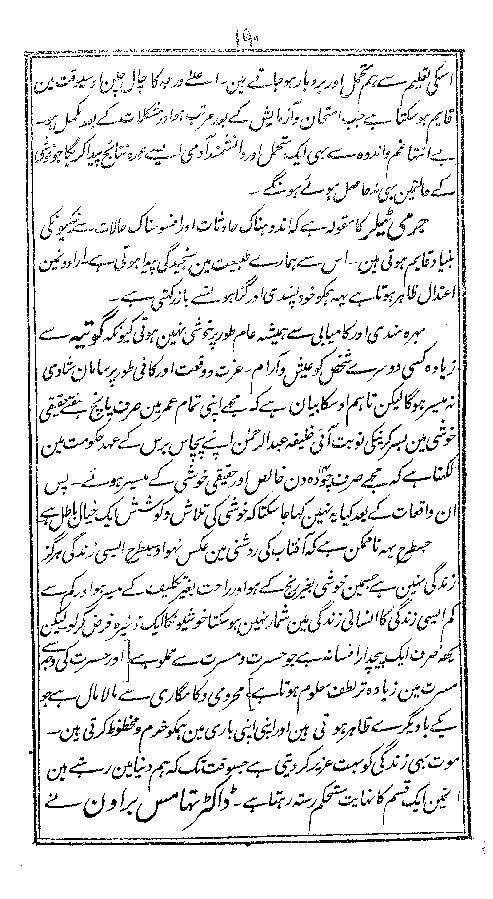 ۱۹۰
اسکی تعلیم سے ہم متحمل اور بردبار ہو جاتے ہین۔ اعلیٰ درجہ کا چال چلن اوسیوقت مین
قایم ہو سکتا ہے جب امتحان و آزمایش کے بعد مرتب ہو اور مشکلات کے بعد مکمل ہو۔
بے انتہا غم و اندوہ سے بھی ایک متحمل اور دانشمند آدمی ایسے عمدہ نتایج پیدا کریگا جو خوشی
کے حالتین بھی نہ حاصل ہوئے ہونگے۔
جرمی ٹیلر کا مقولہ ہے کہ اندوہناک حادثات اور افسوسناک حالات سے نیکیونکی
بنیاد قایم ہوتی ہین۔ اس سے ہمارے طبیعت مین سنجیدگی پیدا ہوتی ہے۔ ارادونمین
اعتدال ظاہر ہوتا ہے یہہ ہمکو خود پسندی اور گناہونسے باز رکھتی ہے۔
بہرہ مندی اور کامیابی سے ہمیشہ عام طور پر خوشی نہین ہوتی کیونکہ گوتیہ سے
زیادہ کسی دوسرے شخص کو عیش و آرام۔ عزت و وقعت اور کافی طور پر سامان شادی
نہ میسر ہوگا لیکن تاہم اوسکا بیان ہے کہ مجھے اپنی تمام عمر مین صرف پانچ ہفتے حقیقی
خوشی مین بسر کرنیکی نوبت آئی خلیفہ عبدالرحمٰن اپنے پچاس برس کے عہد حکومت مین
لکھتا ہے کہ مجھے صرف چودہ دن خالص اور حقیقی خوشی کے میسر ہوئے۔ پس
ان واقعات کے بعد کیا یہ نہین کہا جا سکتا کہ خوشی کی تلاش و کوشش ایک خیال باطل ہے
جسطرح یہہ ناممکن ہے کہ آفتاب کی روشنی مین عکس نہو اوسیطرح ایسی زندگی ہرگز
زندگی نہین ہے جسمین خوشی بغیر رنج کے ہو اور راحت بغیر تکلیف کے میسر ہو اور کم سے
کم ایسی زندگی کا انسانی زندگی مین شمار نہین ہو سکتا خوشیونکا ایک ذخیرہ فرض کر لو لیکن
یہہ صرف ایک پیچدار افسانہ ہے جو حسرت و مسرت سے مملو ہے اور حسرت کی وجہ سے
مسرت مین زیادہ تر لطف معلوم ہوتا ہے محرومی و کامگاری سے مالا مال ہے جو
یکے بادیگرے ظاہر ہوتی ہین اور اپنی اپنی باری مین ہمکو خرم و محظوظ کرتی ہین۔
موت بھی زندگی کو بہت عزیز کر دیتی ہے جسوقت تک کہ ہم دنیا مین رہتے ہین
انمین ایک قسم کا نہایت مستحکم رشتہ رہتا ہے۔ ڈاکٹر تھامس براون نے